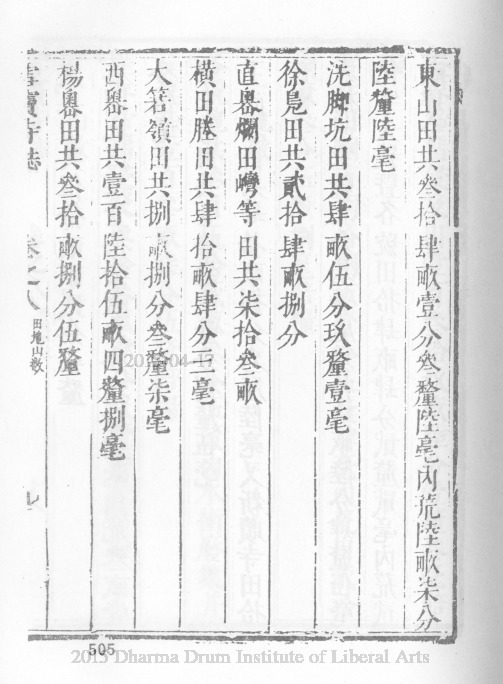 東山田共叄拾肆畝壹分叄釐陸毫內荒陸畝柒分
陸釐陸毫
洗脚坑田共肆畝伍分玖釐壹毫
徐晁田共貳拾肆畝捌分
直嶴爛田灣等田共柒拾叄畝
橫田塍田共肆拾畝肆分二毫
大箬嶺田共捌畝捌分叄釐柒毫
西嶴田共壹百陸拾伍畝四釐捌毫
楊嶴田共叄拾畝捌分伍釐
寺志 卷之八 田地山數 九
505
2013 Dharma Drum Institute of Liberal Arts